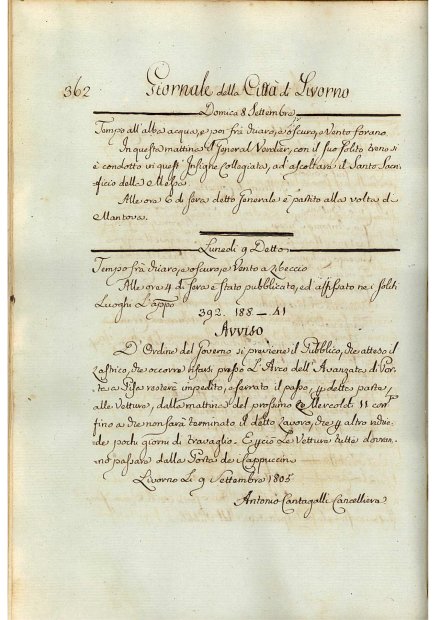 362 Giornale della Città di Livorno
Domica 8 Settembre
Tempo all'alba acqua, e poi frà chiaro, e oscuro, e Vento forano.
In questa mattina il General Verdier, con il suo solito treno si
è condotto in quest' Insigne Collegiata, ad ascoltare il Santo Sacri-
ficio della Messa.
Alle ore 6 di sera detto Generale è partito alla volta di
Mantova.
Lunedì 9 Detto
Tempo frà chiaro, e oscuro, e Vento a Libeccio
Alle ore 4 di sera è stato pubblicato, ed affissato ne i soliti
Luoghi L'app.o
392. 188 — 41
Avviso
D'Ordine del Governo si previene il Pubblico, che atteso il
Lastrico, che occorre presso L'Arco dell'Avanzata di Por-
ta a Pisa resterà impedito, e serrato il passo, p detta parte
alle Vetture, dalla mattina del prossimo Mercoldì 11 cor.
fino a che non sarà terminato il detto Lavoro, che p altro richie-
de pochi giorni di travaglio. E perciò Le Vetture tutte dovran-
no passare dalla Porta de i Cappuccini
Livorno Li 9 Settembre 1805
Antonio Cantagalli Cancelliere